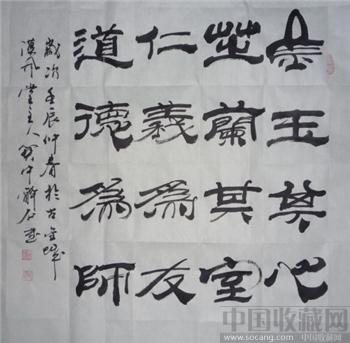 金玉其心
芝蘭其室
仁義為友
道德為師
歲次壬辰仲春於古宣城
漢風堂主人
中国收藏网
www.socang.com